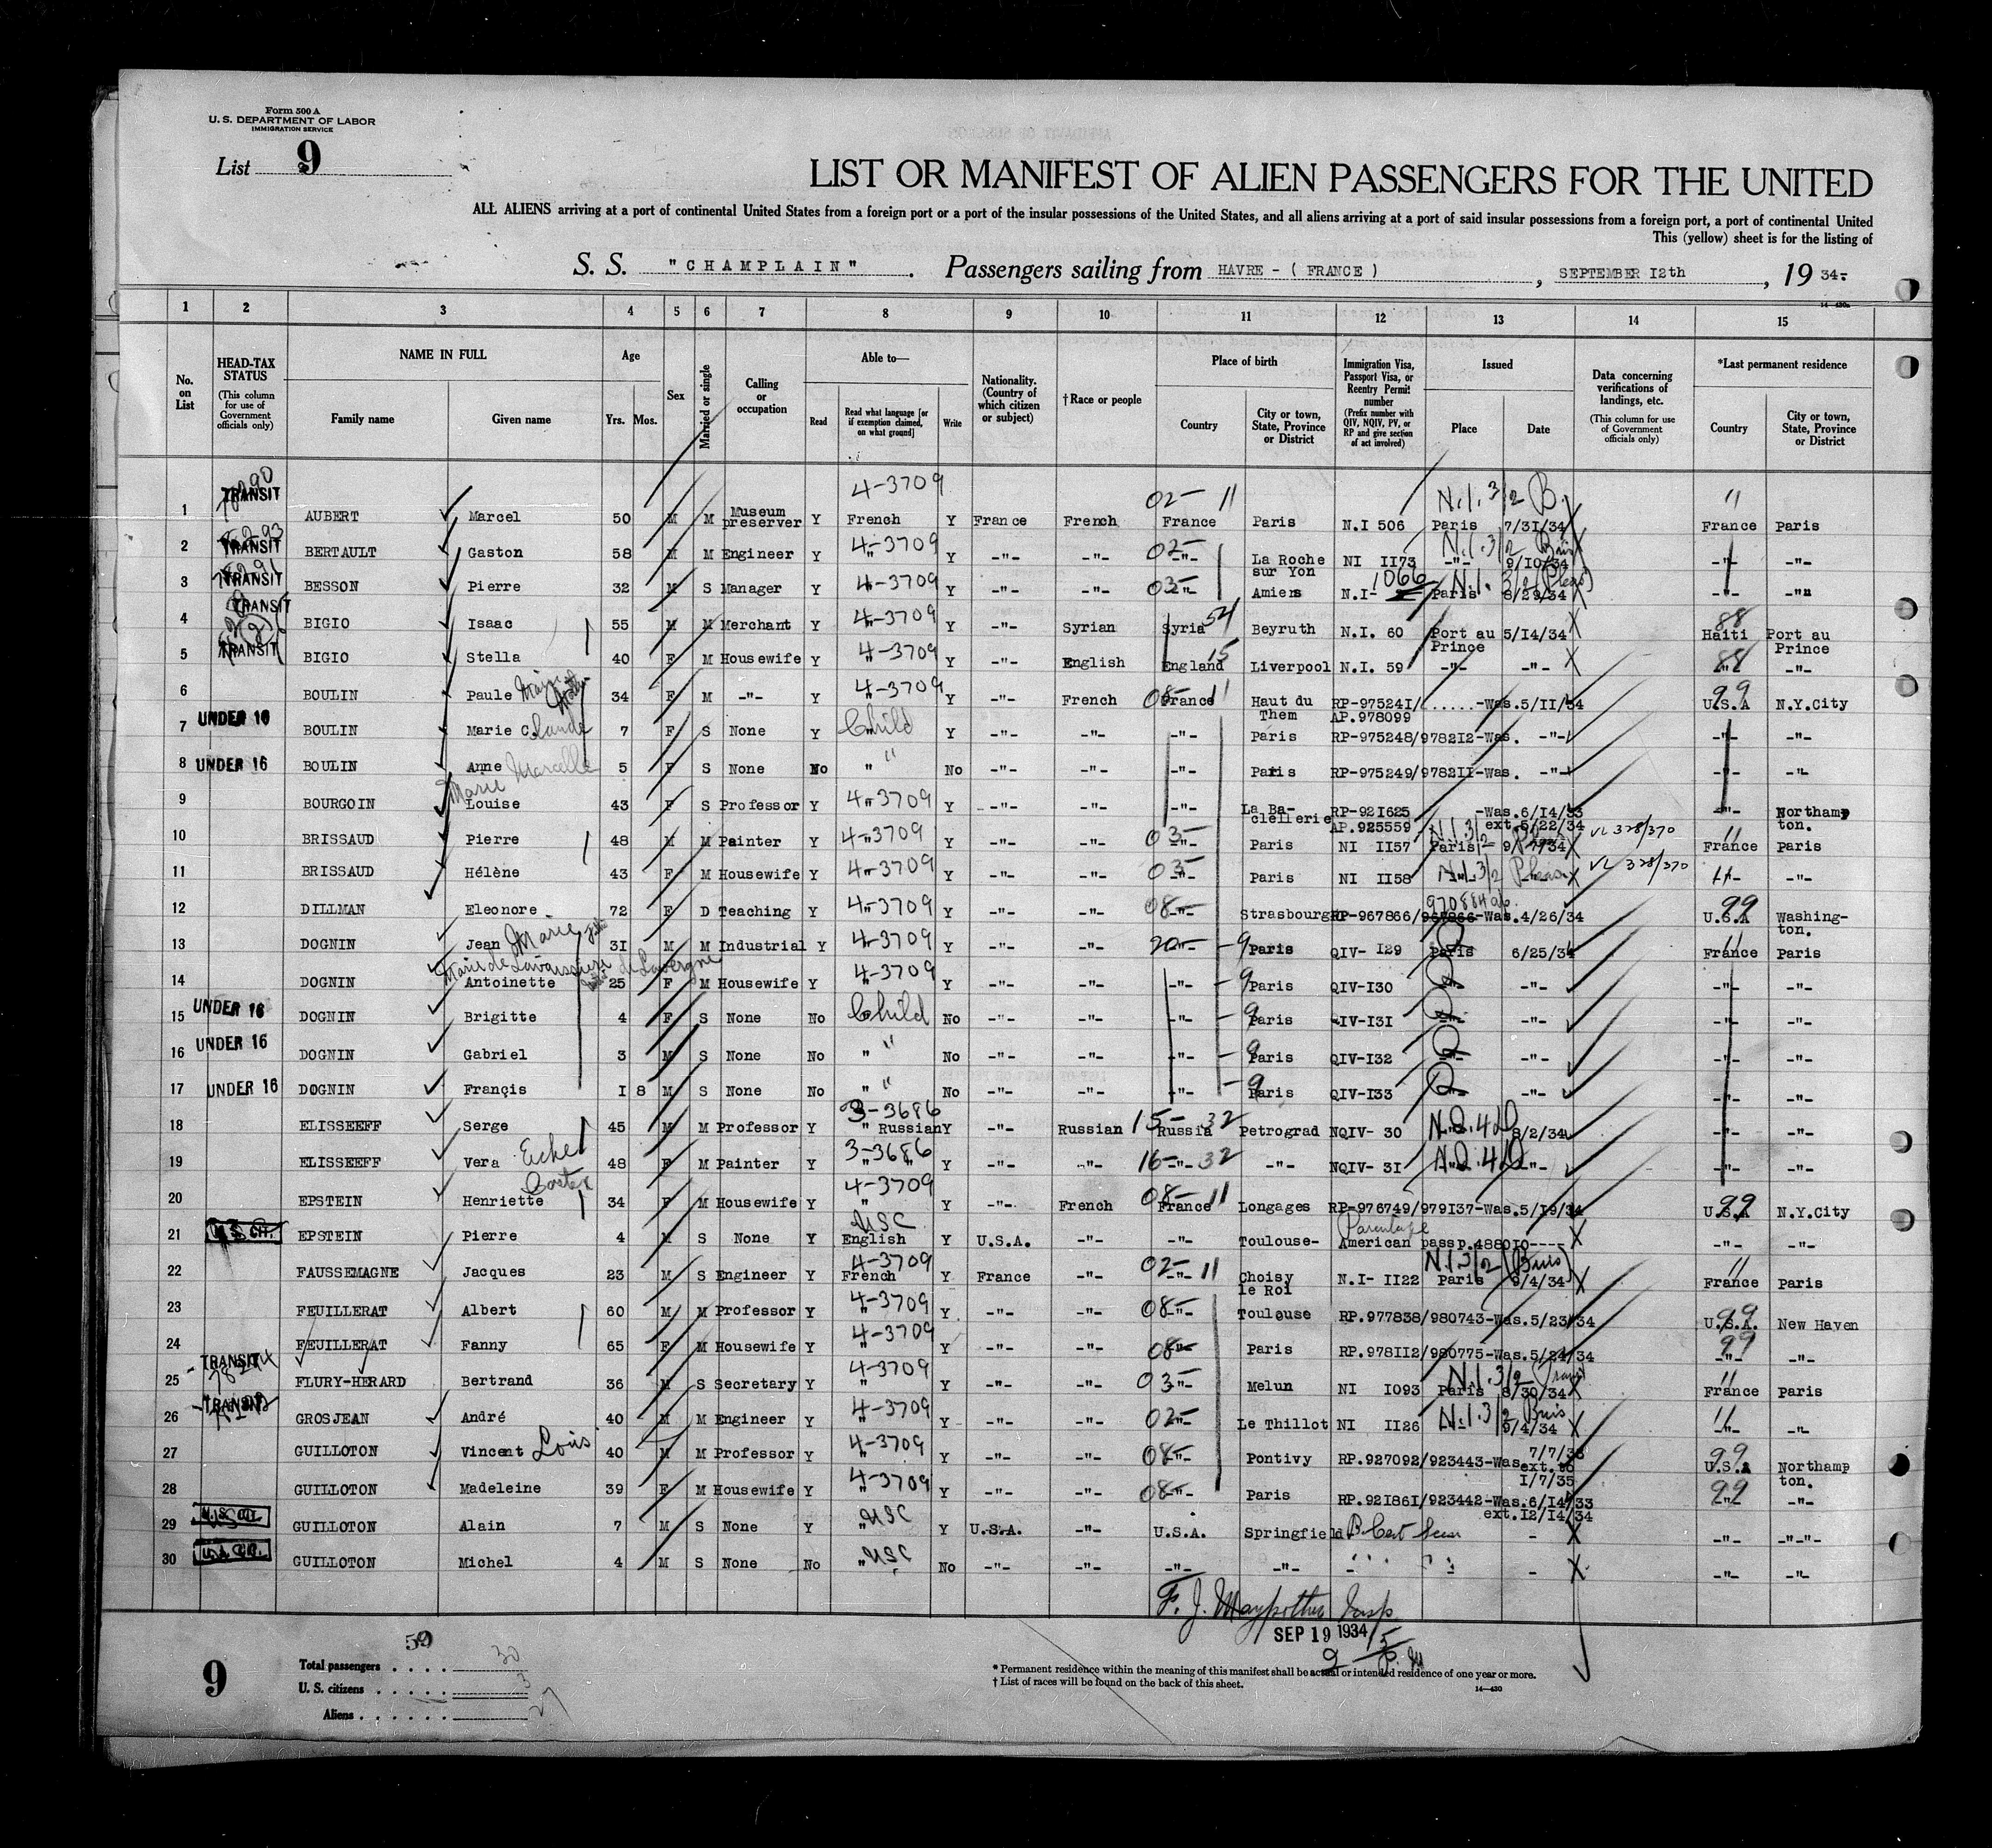 Form 500 A
U. S. DEPARTMENT OF LABOR
IMMIGRATION SERVICE
List 9
LIST OR MANIFEST OF ALIEN PASSENGERS FOR THE UNITED
ALL ALIENS arriving at a port of continental United States from a foreign port or a port of the insular possessions of the United States, and all aliens arriving at a port of said insular possessions from a foreign port, a port of continental United
This (yellow) sheet is for the listing of
S. S. "CHAMPLAIN". Passengers sailing from HAVRE - ( FRANCE ), SEPTEMBER 12th, 19 34-
1 2 3 4 5 6 7 8 9 10 11 12 13 14 15
No. on List
HEAD-TAX STATUS (This column for use of Government officials only)
NAME IN FULL Family name Given name
Age Yrs. Mos.
Sex
Married or single
Calling or occupation
Able to— Read Read what language [or if exemption claimed, on what ground] Write
Nationality. (Country of which citizen or subject)
†Race or people
Place of birth Country City or town, State, Province or District
Immigration Visa, Passport Visa, or Reentry Permit number (Prefix number with QIV, NQIV, PV, or RP and give section of act involved)
Issued Place Date
Data concerning verifications of landings, etc. (This column for use of Government officials only)
*Last permanent residence Country City or town, State, Province or District
1 TRANSIT AUBERT Marcel 50 M M Museum preserver Y French 4-3709 Y France French France 02- 11 Paris N.I 506 Paris 7/31/34 N.I. 3/2 B. France Paris
2 TRANSIT BERTAULT Gaston 58 M M Engineer Y 4-3709 Y -"- -"- 02- La Roche sur Yon NI 1173 -"- 9/10/34 N.I. 3/2 -"- -"-
3 TRANSIT BESSON Pierre 32 M S Manager Y 4-3709 Y -"- -"- 03- Amiens N.I- 1066 Paris 8/29/34 N.I. 3/2 -"- -"-
4 TRANSIT BIGIO Isaac 55 M M Merchant Y 4-3709 Y -"- Syrian Syria 54 Beyruth N.I. 60 Port au Prince 5/14/34 88 Haiti Port au Prince
5 TRANSIT BIGIO Stella 40 F M Housewife Y 4-3709 Y -"- English England 15 Liverpool N.I. 59 -"- -"- 88 -"-
6 BOULIN Paule 34 F M -"- Y 4-3709 Y -"- French 08- France 11 Haut du Them RP-975241/ AP.978099 ......-Was. 5/11/34 99 U.S.A N.Y.City
7 UNDER 16 BOULIN Marie Claude 7 F S None Y Child Y -"- -"- -"- Paris RP-975248/978212-Was. -"- -"- -"-
8 UNDER 16 BOULIN Anne Marcelle 5 F S None No " No -"- -"- -"- Paris RP-975249/978211-Was. -"- -"- -"-
9 BOURGOIN Marie Louise 43 F S Professor Y 4-3709 Y -"- -"- -"- La Ba-clellerie RP-921625 AP.925559 -Was. 6/14/33 ext.5/22/34 -"- Northampton.
10 BRISSAUD Pierre 48 M M Painter Y 4-3709 Y -"- -"- 03- Paris NI 1157 N.I.3/2 Paris 9/7/34 VL 328/370 France Paris
11 BRISSAUD Hélène 43 F M Housewife Y 4-3709 Y -"- -"- 03- Paris NI 1158 N.I.3/2 VL 328/370 -"-
12 DILLMAN Eleonore 72 F D Teaching Y 4-3709 Y -"- -"- 08- Strasbourg RP-967866/967866-Was. 4/26/34 99 U.S.A Washington.
13 DOGNIN Jean Marie 31 M M Industrial Y 4-3709 Y -"- -"- 20- 9 Paris QIV- 129 Paris 6/25/34 France Paris
14 DOGNIN Antoinette 25 F M Housewife Y 4-3709 Y -"- -"- -"- 9 Paris QIV-130 -"- -"- -"-
15 UNDER 16 DOGNIN Brigitte 4 F S None No Child No -"- -"- -"- 9 Paris QIV-131 -"- -"- -"- -"-
16 UNDER 16 DOGNIN Gabriel 3 M S None No " No -"- -"- -"- 9 Paris QIV-132 -"- -"- -"- -"-
17 UNDER 16 DOGNIN Françis 1 8 M S None No " No -"- -"- -"- 9 Paris QIV-133 -"- -"- -"- -"-
18 ELISSEEFF Serge 45 M M Professor Y 3-3686 " Russian Y -"- Russian 15- Russia 32 Petrograd NQIV- 30 8/2/34 -"- -"-
19 ELISSEEFF Vera 48 F M Painter Y 3-3686 Y -"- -"- 16- 32 -"- NQIV- 31 -"- -"- -"-
20 EPSTEIN Henriette 34 F M Housewife Y 4-3709 Y -"- French 08- France 11 Longages RP-976749/979137-Was. 5/19/34 99 U.S.A N.Y.City
21 EPSTEIN Pierre 4 M S None Y USC English Y U.S.A. -"- -"- Toulouse- Parentage American passp.488010---- -"- -"-
22 FAUSSEMAGNE Jacques 23 M S Engineer Y 4-3709 French Y France -"- 02- 11 Choisy le Roi N.I- 1122 N.I 3/2 Paris 9/4/34 France Paris
23 FEUILLERAT Albert 60 M M Professor Y 4-3709 Y -"- -"- 08- Toulouse RP.977838/980743-Was. 5/23/34 99 U.S.A. New Haven
24 FEUILLERAT Fanny 65 F M Housewife Y 4-3709 Y -"- -"- 08- Paris RP.978112/980775-Was. 5/24/34 99 -"- -"-
25 TRANSIT FLURY-HERARD Bertrand 36 M S Secretary Y 4-3709 Y -"- -"- 03- Melun NI 1093 N.I.3/2 Paris 8/30/34 France Paris
26 TRANSIT GROSJEAN André 40 M M Engineer Y 4-3709 Y -"- -"- 02- Le Thillot NI 1126 N.I.3/2 9/4/34 -"-
27 GUILLOTON Vincent Louis 40 M M Professor Y 4-3709 Y -"- -"- 08- Pontivy RP.927092/923443-Was. ext.to 1/7/35 99 U.S.A Northampton.
28 GUILLOTON Madeleine 39 F M Housewife Y 4-3709 Y -"- -"- 08- Paris RP.921861/923442-Was. 6/14/33 ext.12/14/34 99 -"-
29 GUILLOTON Alain 7 M S None Y USC Y U.S.A. -"- U.S.A. Springfield B. Cert Seen - -"- -"-"-
30 GUILLOTON Michel 4 M S None No USC No -"- -"- -"- -"- - -"- -"-
SEP 19 1934
59
9
Total passengers . . . . 30
U. S. citizens . . . . . . 3
Aliens . . . . . . 27
* Permanent residence within the meaning of this manifest shall be actual or intended residence of one year or more.
† List of races will be found on the back of this sheet.
14—430